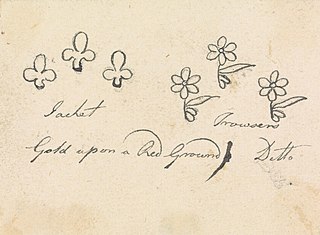 Jacket Trowsers
Gold upon a Red Ground Ditto